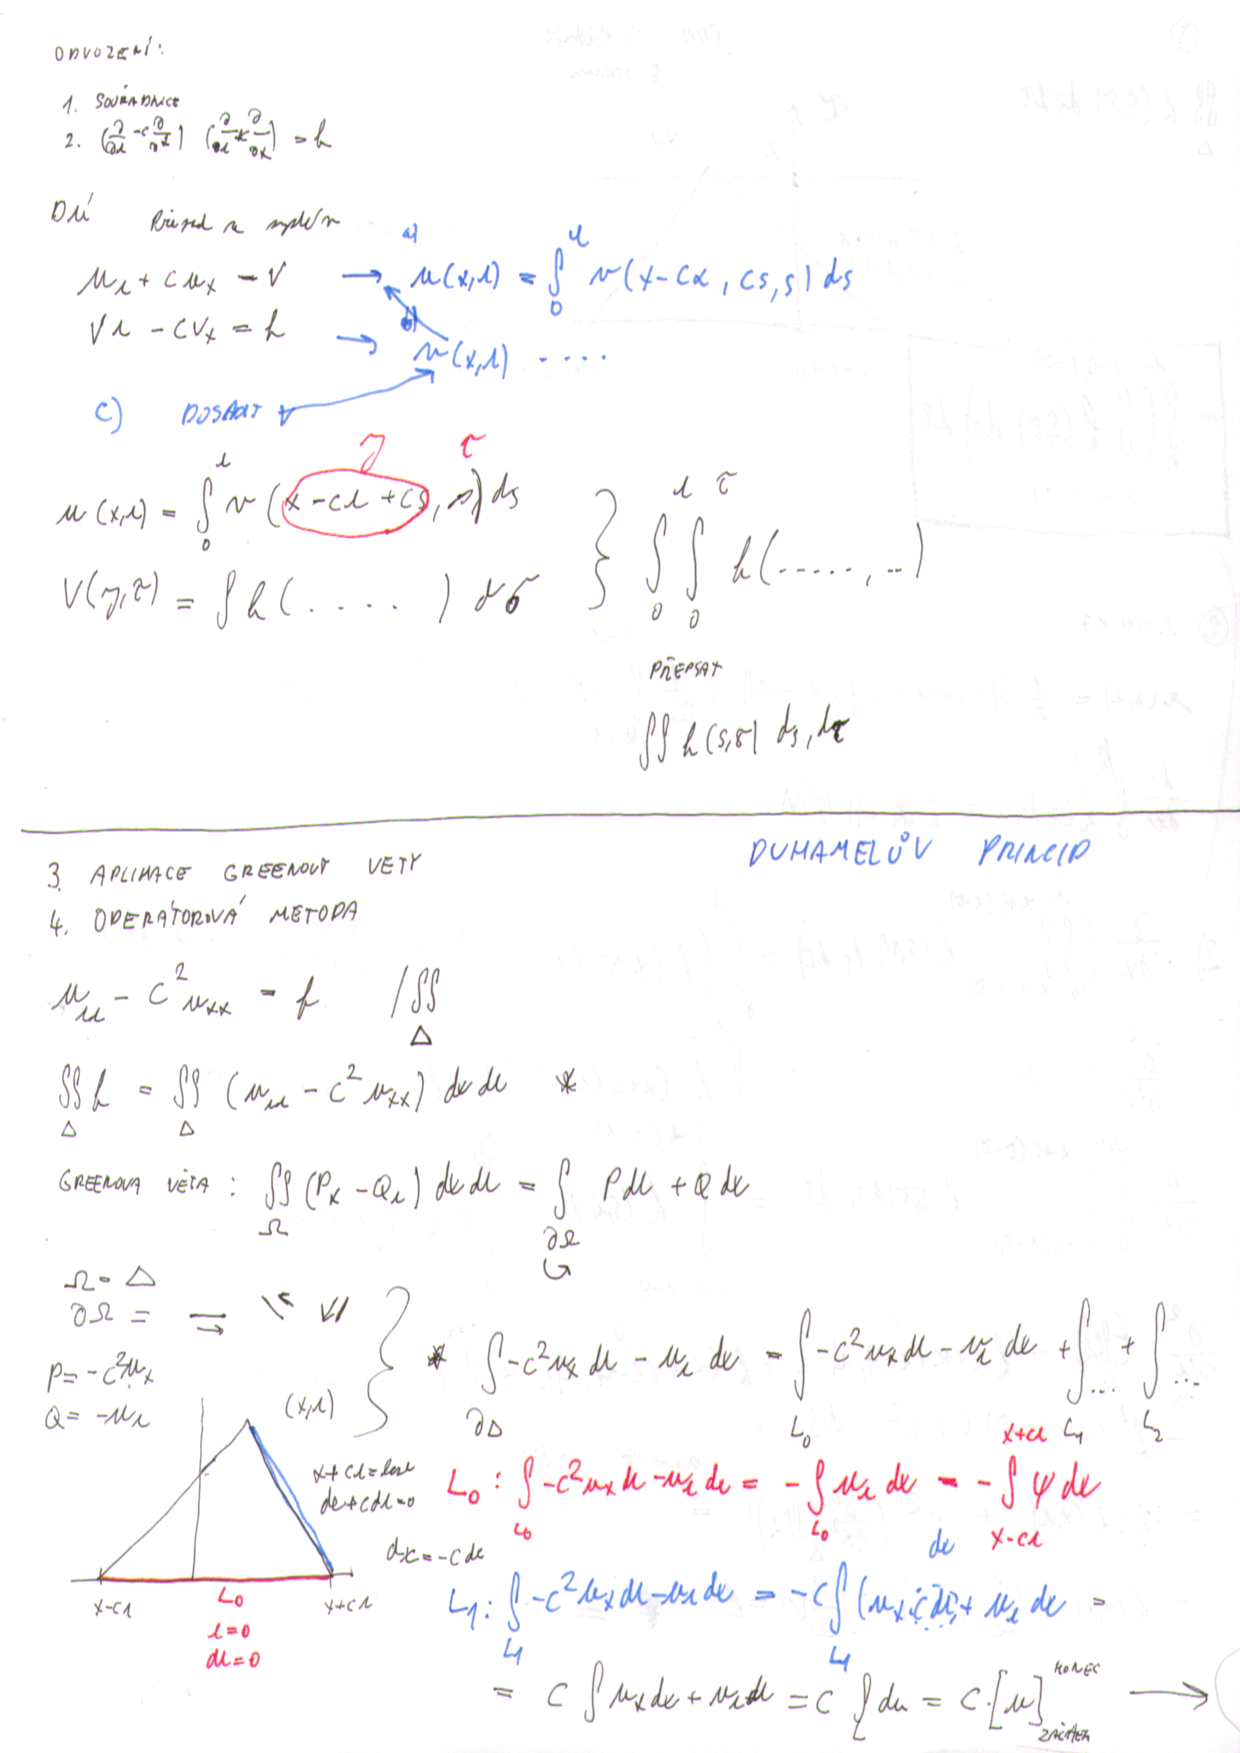 ODVOZENÍ:
1. SOUŘADNICE
2. (∂/∂t - c ∂/∂x) (∂/∂t + c ∂/∂x) = h
u_t + c u_x = v → a) u(x,t) = ∫_0^t v(x-ct, cs, s) ds
v_t - c v_x = h → b) v(x,t) ....
c) DOSADIT v
η τ
u(x,t) = ∫_0^t v(x-ct+cs, s) ds
v(η,τ) = ∫ h(....) dσ } ∫_0^t ∫_0^τ h(....., ..)
PŘEPSAT
∫∫ h(s,σ) ds, dτ
DUHAMELŮV PRINCIP
3. APLIKACE GREENOVY VĚTY
4. OPERÁTOROVÁ METODA
u_tt - c² u_xx = f /∫∫_Δ
∫∫_Δ h = ∫∫_Δ (u_tt - c² u_xx) dx dt *
GREENOVA VĚTA: ∫∫_Ω (P_x - Q_t) dx dt = ∫_∂Ω P dt + Q dx
Ω = Δ
∂Ω =
P = -c² u_x
Q = -u_t
* ∫_∂Δ -c² u_x dt - u_t dx = ∫_L₀ -c² u_x dt - u_t dx + ∫_L₁ ... + ∫_L₂ ...
(x,t)
x+ct = konst
dx + c dt = 0
dx = -c dt
x-ct
L₀
x+ct
t=0
dt=0
L₀: ∫_L₀ -c² u_x dt - u_t dx = -∫_L₀ u_t dx = -∫_{x-ct}^{x+ct} ψ dx
L₁: ∫_L₁ -c² u_x dt - u_t dx = -c ∫_L₁ (u_x c dt + u_t dx =
= c ∫ u_x dx + u_t dt = c ∫ du = c·[u]_ZAČÁTEK^KONEC →